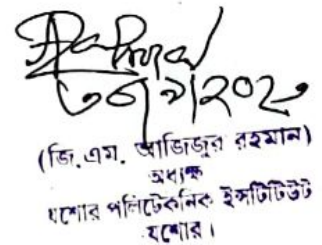 (জি.এম. আজিজুর রহমান)
অধ্যক্ষ
যশোর পলিটেকনিক ইন্সটিটিউট
যশোর।